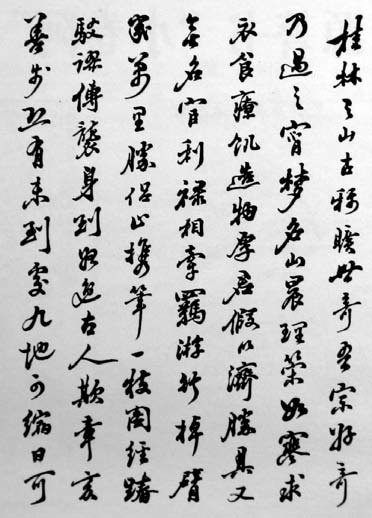 桂林之山古稱曠世奇吾宗好奇
乃過之宵夢名山晨理策如寒求
衣食療飢造物厚君假以濟勝具又
無名官利祿相牽羈游行掉臂
萬里勝侶止攜筆一枝圖經踳
駁謬傳襲身到古人欺章亥
善步有未到處九地可縮日可